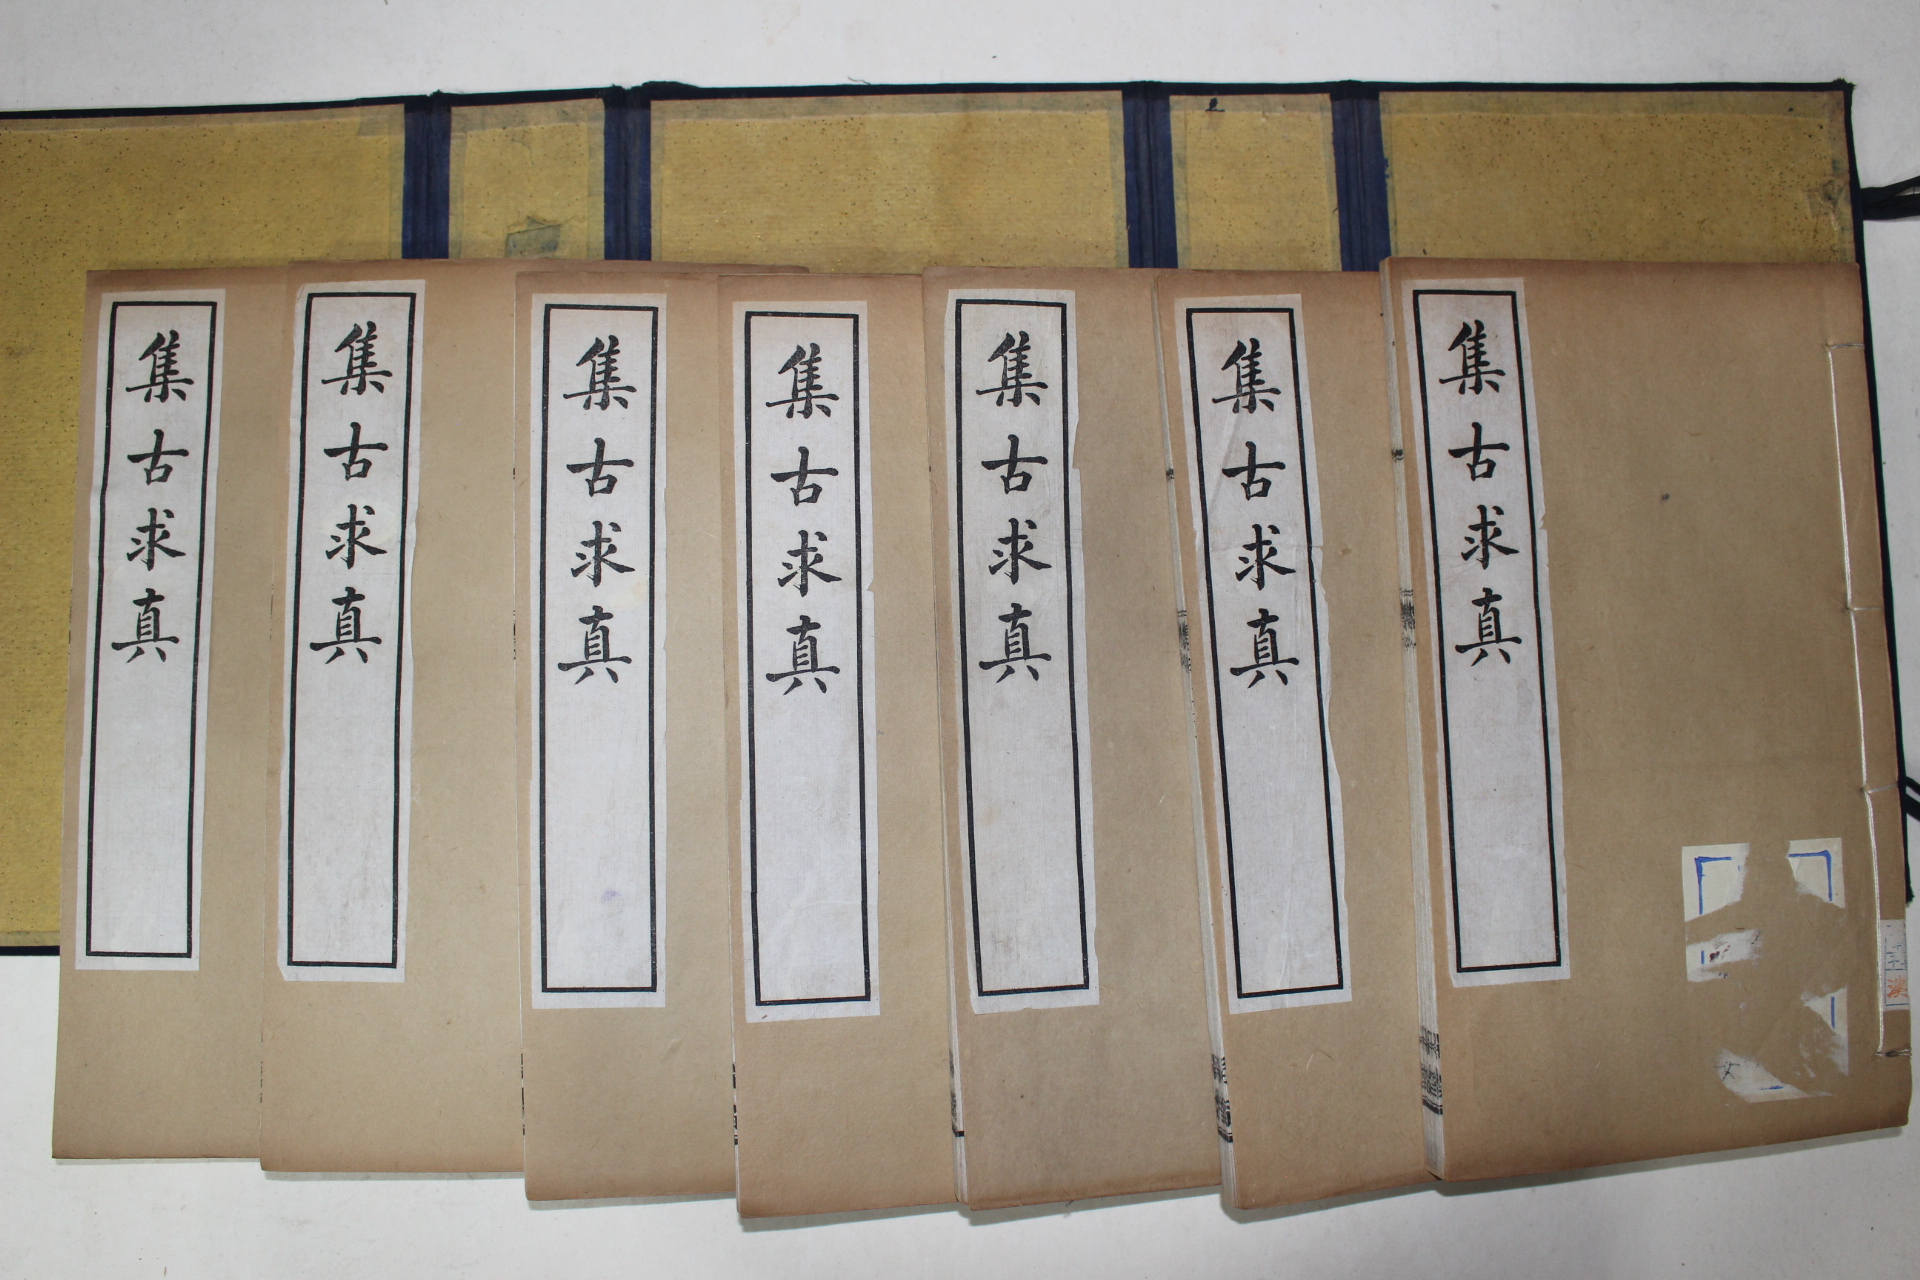 集古求真
集古求真
集古求真
集古求真
集古求真
集古求真
集古求真